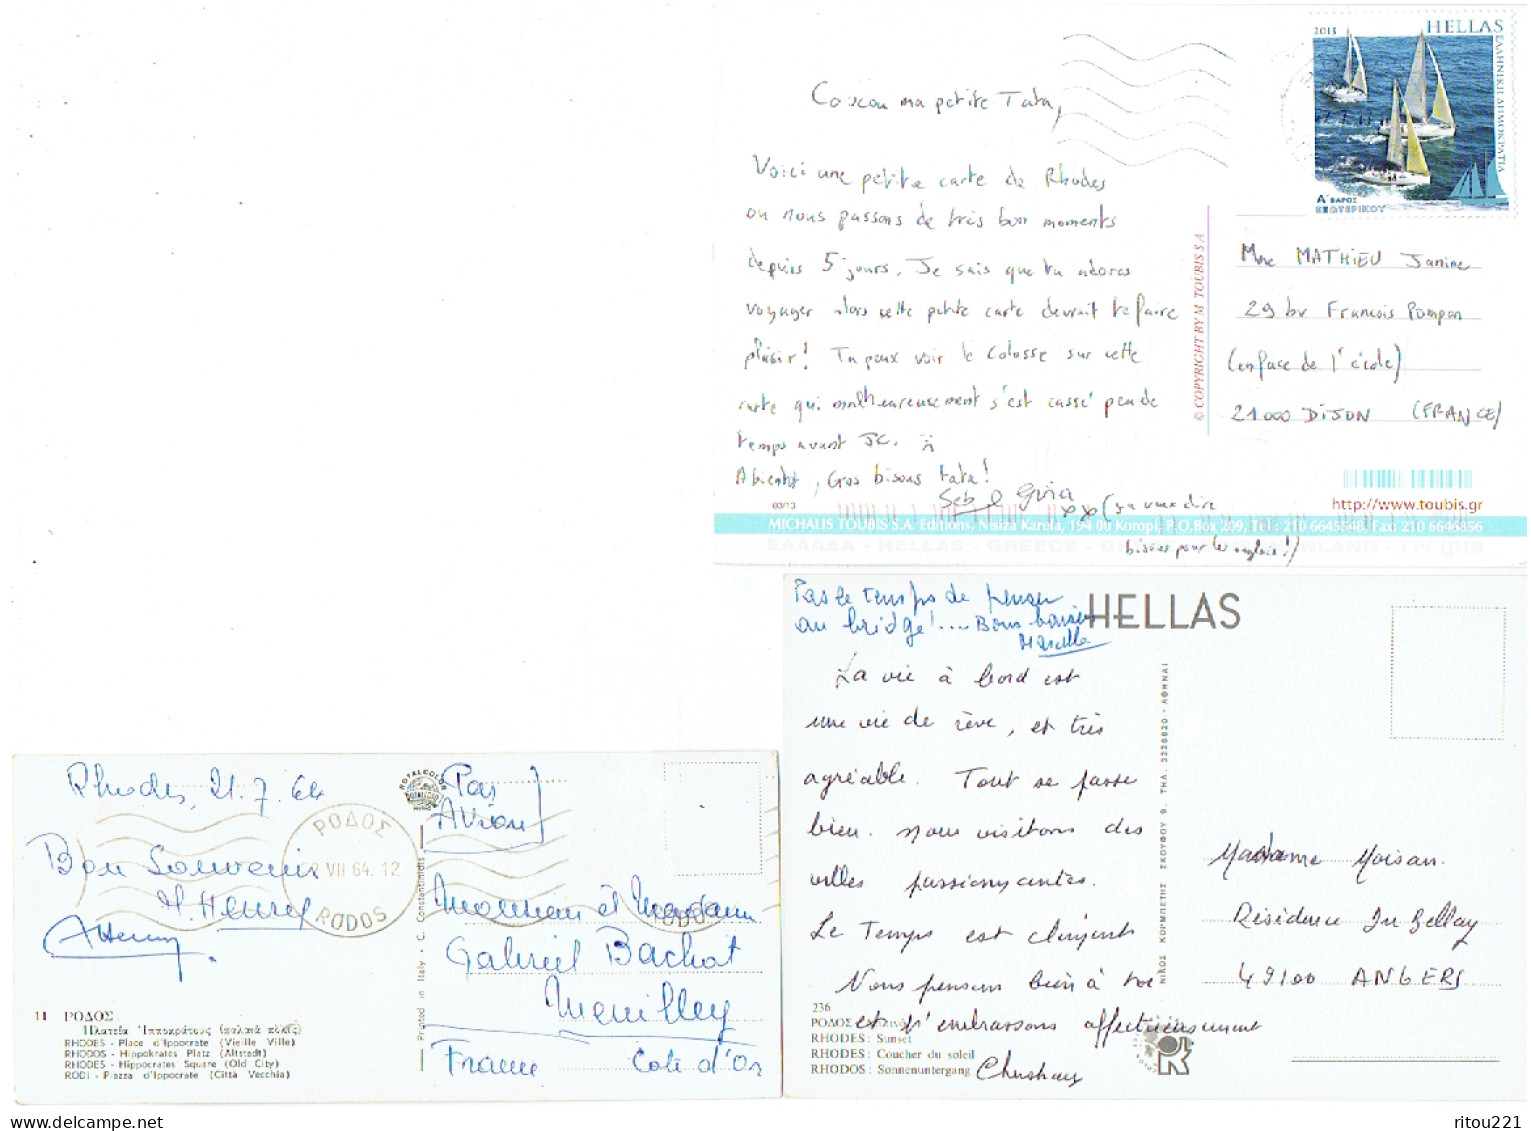 HELLAS
2015
ΕΛΛΗΝΙΚΗ ΔΗΜΟΚΡΑΤΙΑ
Α' ΒΑΡΟΣ
ΕΞΩΤΕΡΙΚΟΥ
Coucou ma petite Tata,
Voici une petite carte de Rhodes
ou nous passons de très bon moments
depuis 5 jours. Je sais que tu adores
voyager alors cette petite carte devrait te faire
plaisir! Tu peux voir le Colosse sur cette
carte qui malheureusement s'est cassé peu de
temps avant JC.
A bientôt, Gros bisous tata!
Seb
xx (ça veut dire
bisous pour les anglais!)
© COPYRIGHT BY M. TOUBIS S.A.
Mme MATHIEU Janine
29 bv Francois Pompon
(en face de l'école)
21000 DIJON (FRANCE)
http://www.toubis.gr
03/13
MICHALIS TOUBIS S.A. Editions, Nisiza Karela, 194 00 Koropi, P.O.Box 209, Tel.: 210 6645548, Fax: 210 6646856
ΕΛΛΑΔΑ - HELLAS - GREECE
Pas le temps de penser
au bridge!... Bons baisers
HELLAS
La vie à bord est
une vie de rêve, et très
agréable. Tout se passe
bien. nous visitons des
villes passionnantes.
Le Temps est clément
Nous pensons bien à toi
et t'embrassons affectueusement
236
RHODES: Sunset
RHODES: Coucher du soleil
RHODOS: Sonnenuntergang
ΝΙΚΟΣ ΚΟΡΜΠΕΤΗΣ ΣΚΟΥΦΟΥ 9. ΤΗΛ. 3228820 - ΑΘΗΝΑΙ
Madame Moisan
Résidence Du Bellay
49100 ANGERS
Rhodes, 21.7.64
Bon Souvenir
M. Henry
ΡΟΔΟΣ
VII 64. 12
RODOS
ROYALCOLOR
Par
Avion
Monsieur et Madame
Gabriel Bachot
Meuilley
France Cote d'Or
Printed in Italy - C. Constantinidis
11 ΡΟΔΟΣ
Πλατεῖα Ἱπποκράτους (παλαιὰ πόλις)
RHODES - Place d'Ippocrate (Vieille Ville)
RHODOS - Hippokrates Platz (Altstadt)
RHODES - Hippocrates Square (Old City)
RODI - Piazza d'Ippocrate (Città Vecchia)
ritou221